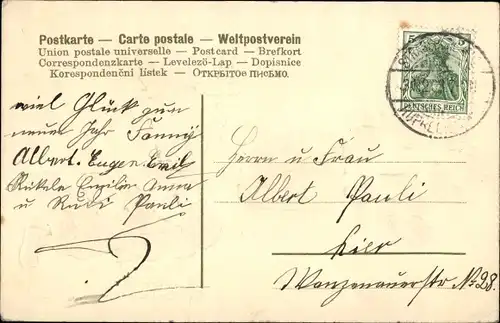 Postkarte — Carte postale — Weltpostverein
Union postale universelle — Postcard — Brefkort
Correspondenzkarte — Levelező-Lap — Dopisnice
Korespondenční lístek — Открытое письмо.
viel Glück zum
neuen Jahr Fanny
Albert. Eugen. Emil
Rikele Emilie Anna
u Rudi Pauli
5 5
DEUTSCHES REICH
Herrn u Frau
Albert Pauli
hier
Wanzenauerstr No 28.